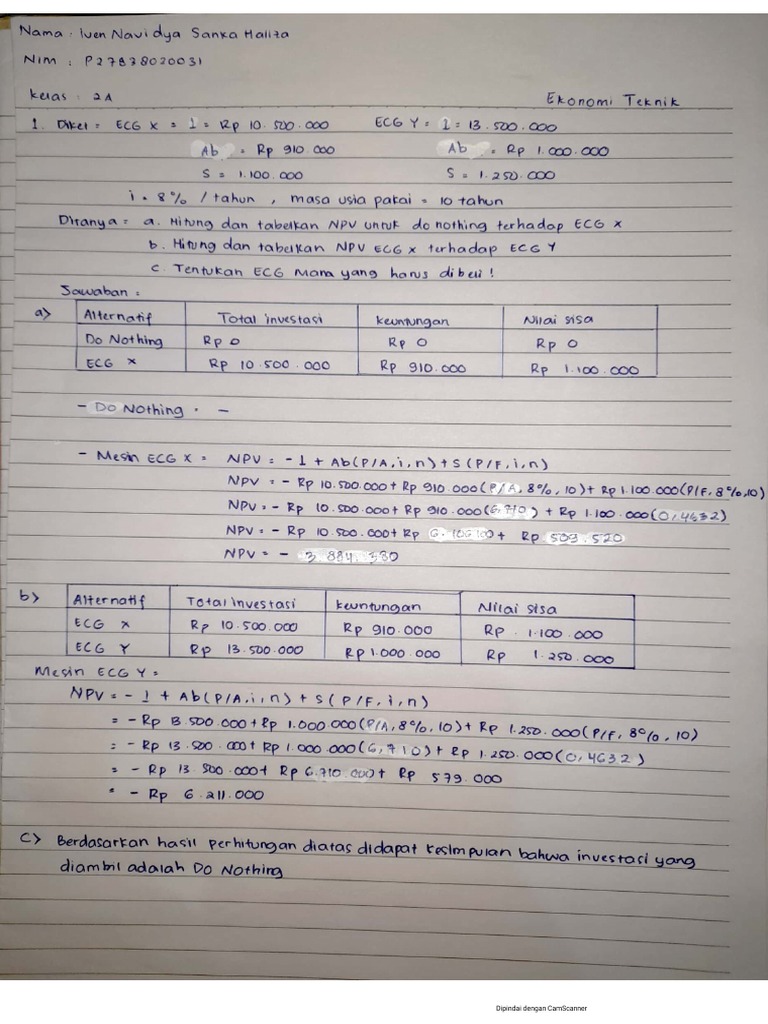 Nama : Iven Navidya Sanka Haliza
NIM : P27838020031
Kelas : 2A
Ekonomi Teknik
1. Diket = ECG X = I = Rp 10.500.000 ECG Y = I = 13.500.000
Ab = Rp 910.000 Ab = Rp 1.000.000
S = 1.100.000 S = 1.250.000
i = 8% / tahun , masa usia pakai = 10 tahun
Ditanya = a. Hitung dan tabelkan NPV untuk do nothing terhadap ECG X
b. Hitung dan tabelkan NPV ECG X terhadap ECG Y
c. Tentukan ECG Mana yang harus dibeli !
Jawaban :
a) Alternatif Total investasi Keuntungan Nilai sisa
Do Nothing Rp 0 Rp 0 Rp 0
ECG X Rp 10.500.000 Rp 910.000 Rp 1.100.000
- Do Nothing . -
- Mesin ECG X = NPV = - I + Ab(P/A,i,n) + S (P/F,i,n)
NPV = - Rp 10.500.000 + Rp 910.000 (P/A, 8%, 10) + Rp 1.100.000 (P/F, 8%, 10)
NPV = - Rp 10.500.000 + Rp 910.000 (6,710) + Rp 1.100.000 (0,4632)
NPV = - Rp 10.500.000 + Rp 6.106.100 + Rp 509.520
NPV = - 3.884.380
b) Alternatif Total investasi Keuntungan Nilai sisa
ECG X Rp 10.500.000 Rp 910.000 Rp . 1.100.000
ECG Y Rp 13.500.000 Rp 1.000.000 Rp 1.250.000
Mesin ECG Y =
NPV = - I + Ab (P/A,i,n) + S (P/F,i,n)
= - Rp 13.500.000 + Rp 1.000.000 (P/A, 8%, 10) + Rp 1.250.000 (P/F, 8%, 10)
= - Rp 13.500.000 + Rp 1.000.000 (6,710) + Rp 1.250.000 (0,4632)
= - Rp 13.500.000 + Rp 6.710.000 + Rp 579.000
= - Rp 6.211.000
c) Berdasarkan hasil perhitungan diatas didapat kesimpulan bahwa investasi yang
diambil adalah Do Nothing
Dipindai dengan CamScanner